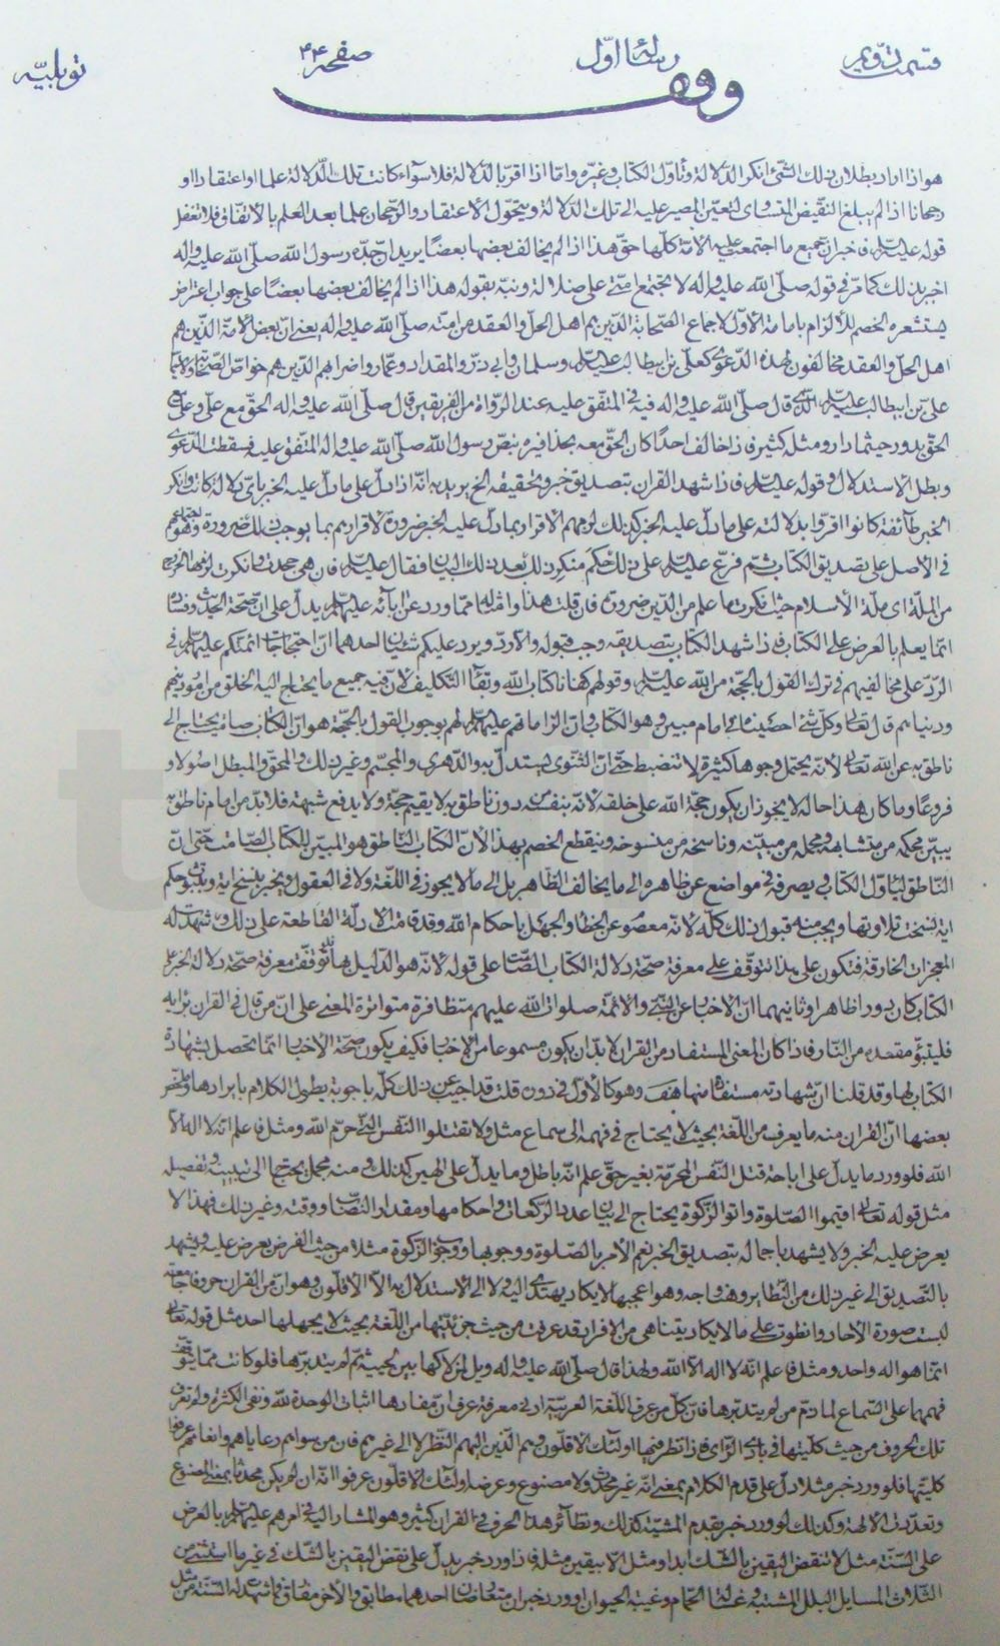 قسمت دويم رسالهٔ اوّل صفحه ۴۴ توبلیّه
وقف
هو اذا اراد بطلان ذلك الشئ انكر الدلالة وتأوّل الكتاب وغيره وامّا اذا اقرّ بالدلالة فلا سوآء كانت تلك الدّلالة علما او اعتقادا او
رجحانا اذ لم يبلغ النقيض التساوى لتعيّن المصير عليه الى تلك الدلالة ويتحوّل الاعتقاد والرّجحان علما بعد العلم بالاتّفاق فلا تغفل
قوله عليه السّلم فاخبر ان جميع ما اجتمعت عليه الامّة كلّها حقّ هذا اذ لم يخالف بعضها بعضًا يريد انّ جدّه رسول الله صلّى الله عليه واله
اخبر بذلك كما مرّ فى قوله صلّى الله عليه واله لا تجتمع امّتى على ضلالة ونبّه بقوله هذا اذ لم يخالف بعضها بعضًا على جواب اعتراض
يستشعره الخصم للالزام بامامة الاوّل لاجماع الصّحابة الّذين هم اهل الحلّ والعقد من امّته صلّى الله عليه واله يعنى انّ بعض الامّة الّذين هم
اهل الحلّ والعقد مخالفون لهذه الدّعوى كعلىّ بن ابيطالب عليه السّلم وسلمان وابى ذرّ والمقداد وعمّار واضرابهم الّذين هم خواصّ الصّحابة ولا سيّما
علىّ بن ابيطالب عليه السّلم الّذى قال صلّى الله عليه واله فيه فى المتّفق عليه عند الرّواة من الفريقين قال صلّى الله عليه واله الحقّ مع علىّ وعلىّ مع
الحقّ يدور حيثما دار ومثله كثير فاذا خالف احدًا كان الحقّ معه بحذافيره بنصّ رسول الله صلّى الله عليه واله المتّفق عليه فسقطت الدّعوى
وبطل الاستدلال وقوله عليه السّلم فاذا شهد القران بتصديق خبر وتحقيقه الخ يريد به انّه اذا دلّ على ما دلّ عليه الخبر باىّ دلالة كانت وانكر
الخبر طآئفة كانوا اقرّوا بدلالته على ما دلّ عليه الخبر كذلك لزمهم الاقرار بما دلّ عليه الخبر ضرورة لاقرارهم بما يوجب ذلك ضرورة
فى الاصل على تصديق الكتاب ثمّ فرّع عليه السّلم على ذلك حكم منكر ذلك بعد ذلك البيان فقال عليه السّلم فان هى جحدت وانكرت لزمها الخروج
من الملّة اى ملّة الاسلام حيث انكرت ما علم من الدّين ضرورة فان قلت هذا وامثاله ممّا ورد عن ابآئه عليهم السّلم يدلّ على انّ صحّة الحديث وفساده
انّما يعلم بالعرض على الكتاب فاذا شهد الكتاب بتصديقه وجب قبوله والّا ردّ ويرد عليكم شيئان احدهما انّ احتجاجات ائمّتكم عليهم السّلم فى
الردّ على مخالفيهم فى ترك القول بالحجّة من الله عليه السّلم وقولهم كفانا كتاب الله وبقآء التكليف لانّ فيه جميع ما يحتاج اليه الخلق من امور دينهم
ودنياهم قال تعالى وكلّ شئ احصيناه فى امام مبين وهو الكتاب وانّ الزاماتهم عليهم السّلم لهم بوجوب القول بالحجّة هو انّ الكتاب صامت يحتاج الى
ناطق به عن الله تعالى لانّه يحتمل وجوها كثيرة لا تنضبط حتّى انّ الثنوى يستدلّ به والدّهرى والمجسّم وغير ذلك والمحقّ والمبطل اصولا و
فروعًا وما كان هذا حاله لا يجوز ان يكون حجّة الله على خلقه لانّه بنفسه دون ناطق به لا يقيم حجّة ولا يدفع شبهة فلا بدّ من امام ناطق به
يبيّن محكمه من متشابهه ومجمله من مبيّنه وناسخه من منسوخه وينقطع الخصم بهذا لانّ الكتاب النّاطق هو المبيّن للكتاب الصّامت حتّى انّ
النّاطق ليأوّل الكتاب ويصرفه فى مواضع عن ظاهره الى ما يخالف الظّاهر بل الى ما لا يجوز فى اللّغة ولا فى العقول ويخبر بنسخ اية وبثبوت حكم
اية نسخت تلاوتها ويجب منه قبول ذلك كلّه لانّه معصوم عن الخطا والجهل باحكام الله وقد قامت الادلّة القاطعة على ذلك وشهدت له
المعجزات الخارقة فتكون على هذا تتوقّف على معرفة صحّة دلالة الكتاب الصّامت على قوله لانّه هو الدّليل بها فلو توقّفت معرفة صحّة دلالة الخبر على
الكتاب كان دورا ظاهرا وثانيهما انّ الاخبار عن النّبى والائمّة صلوات الله عليهم متظافرة متواترة المعنى على انّ من قال فى القران برايه
فليتبوّء مقعده من النّار فاذا كان المعنى المستفاد من القران لا بدّ ان يكون مسموعا من الاخبار فكيف يكون صحّة الاخبار انّما تحصل بشهادة
الكتاب لها وقد قلنا انّ شهادته مستفادة منها هف وهو كالاوّل فى دون قلت قد اجيب عن ذلك كلّه باجوبة يطول الكلام بايرادها
بعضها انّ القران منه ما يعرف من اللّغة بحيث لا يحتاج فى فهمه الى سماع مثل ولا تقتلوا النّفس الّتى حرّم الله ومثل فاعلم انّه لا اله الّا
الله فلو ورد ما يدلّ على اباحة قتل النّفس المحرّمة بغير حقّ علم انّه باطل وما يدلّ على الهين كذلك ومنه مجمل يحتاج الى تبيينه وتفصيله
مثل قوله تعالى اقيموا الصّلوة واتوا الزّكوة يحتاج الى بيان عدد الرّكعات واحكامها ومقدار النّصاب ووقته وغير ذلك فهذا لا
يعرض عليه الخبر ولا يشهد باجماله بتصديق الخبر نعم الامر بالصّلوة ووجوبها ووجوب الزّكوة مثلا من حيث الفرض يعرض عليه ويشهد
بالتّصديق الى غير ذلك من النّظاير وهنا وجه وهو اعجبها لا يكاد يهتدى اليه ولا الى الاستدلال به الّا الاقلّون وهو انّ من القران حروفا
لبست صورة الاحاد وانطوت على ما لا يكاد يتناهى من الافراد قد عرفت من حيث جزئيّتها من اللّغة بحيث لا يجهلها احد مثل قوله تعالى
انّما هو اله واحد ومثل فاعلم انّه لا اله الّا الله ولهذا قال صلّى الله عليه واله ويل لمن لاكها بين لحييه ثمّ لم يتدبّرها فلو كانت ممّا يتوقّف
فهمها على السّماع لما ذمّ من لم يتدبّرها فانّ كلّ من عرف اللّغة العربيّة ادنى معرفة عرف انّ مفادها اثبات الوحدة لله ونفى الكثرة ولم تعرف
تلك الحروف من حيث كلّيّتها فى بادى الرّاى فاذا نظر فيها اولئك الاقلّون وهم الّذين اليهم النّظر لا الى غيرهم فانّ من سواهم رعاياهم واتباعهم
كلّيّتها فلو ورد خبر مثلا دلّ على قدم الكلام بمعنى انّه غير محدث ولا مصنوع وعرضه اولئك الاقلّون عرفوا انّه ان لم يكن محدثا بمعنى المصنوع
وتعدّدت الالهة وكذلك لو ورد خبر بقدم المشيّة كذلك ونظآئر هذا الحرف فى القران كثير وهو المشار اليه فى امرهم عليهم السّلم بالعرض
على السّنّة مثل لا تنقض اليقين بالشّك ابدا ومثل الّا بيقين مثله فاذا ورد خبر يدلّ على نقض اليقين بالشّك فى غير ما استثنى من
الثّلاث المسايل البلل المشتبه وغسالة الحمّام وغيبة الحيوان او ورد خبران متعارضان احدهما مطابق والاخر مفارق فما شهد له السّنّة من مثل